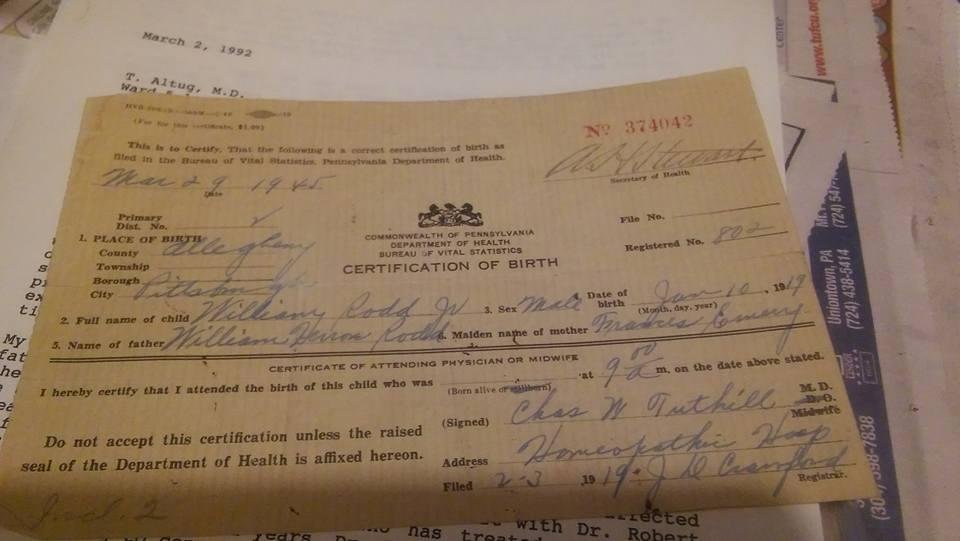 March 2, 1992
T. Altug, M.D.
(Fee for this certificate, $1.00)
Nº 374042
This is to Certify, That the following is a correct certification of birth as
filed in the Bureau of Vital Statistics, Pennsylvania Department of Health.
Mar 29 1945
Date
A H Stewart
Secretary of Health
Primary
Dist. No.
File No.
COMMONWEALTH OF PENNSYLVANIA
DEPARTMENT OF HEALTH
BUREAU OF VITAL STATISTICS
CERTIFICATION OF BIRTH
Registered No. 802
1. PLACE OF BIRTH
County Allegheny
Township
Borough
City Pittsburgh
2. Full name of child William Rodd Jr 3. Sex Male Date of birth Jan 10, 1919
(Month, day, year)
5. Name of father William Rodd 6. Maiden name of mother Frances Emery
CERTIFICATE OF ATTENDING PHYSICIAN OR MIDWIFE
I hereby certify that I attended the birth of this child who was at 9 00 a m, on the date above stated.
(Born alive or stillborn)
(Signed) Chas W Tuthill M. D.
D. O.
Midwife
Do not accept this certification unless the raised
seal of the Department of Health is affixed hereon.
Address Homeopathic Hosp
Filed 2-3 1919. J D Crawford
Registrar.
Incl. 2
affected
with Dr. Robert
years
has
www.tufcu.org
Center
Uniontown, PA
(724) 438-5414
(724) 547